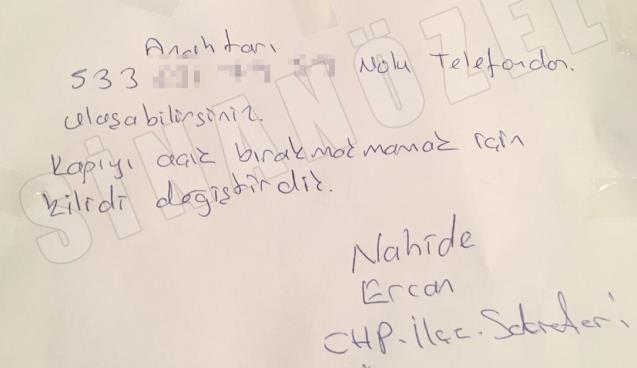 Anahtarı
533 Nolu Telefondan.
ulaşabilirsiniz.
Kapıyı açık bırakmamak için
kilidi değiştirdik.
Nahide
Ercan
CHP. İlçe. Sekreteri
SİNAN ÖZEL